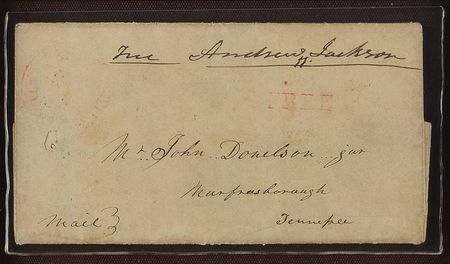 Free Andrew Jackson
FREE
Mr. John Donelson jur
Murfresborough
Mail Tennessee